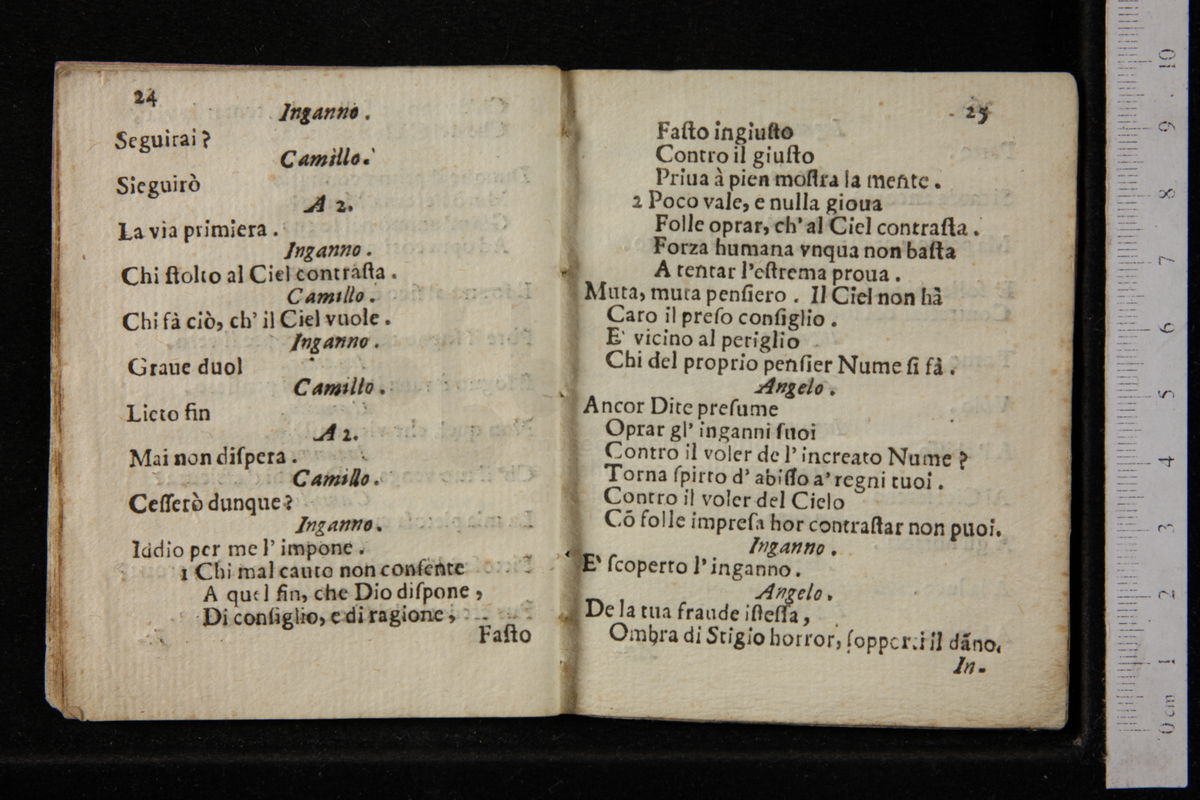 24
Inganno.
Seguirai?
Camillo.
Sieguirò
A 2.
La via primiera.
Inganno.
Chi ſtolto al Ciel contraſta.
Camillo.
Chi fà ciò, ch' il Ciel vuole.
Inganno.
Graue duol
Camillo.
Lieto fin
A 2.
Mai non diſpera.
Camillo.
Ceſſerò dunque?
Inganno.
Iddio per me l' impone.
1 Chi mal cauto non conſente
A quel fin, che Dio diſpone,
Di conſiglio, e di ragione,
Faſto
25
Faſto ingiuſto
Contro il giuſto
Priua à pien moſtra la mente.
2 Poco vale, e nulla gioua
Folle oprar, ch' al Ciel contraſta.
Forza humana vnqua non baſta
A tentar l'eſtrema proua.
Muta, muta penſiero. Il Ciel non hà
Caro il preſo conſiglio.
E' vicino al periglio
Chi del proprio penſier Nume ſi fà.
Angelo.
Ancor Dite preſume
Oprar gl' inganni ſuoi
Contro il voler de l' increato Nume?
Torna ſpirto d' abiſſo a' regni tuoi.
Contro il voler del Cielo
Cõ folle impreſa hor contraſtar non puoi.
Inganno.
E' ſcoperto l'inganno.
Angelo.
De la tua fraude iſteſſa,
Ombra di Stigio horror, ſopporti il dãno.
In-
0 cm 1 2 3 4 5 6 7 8 9 10